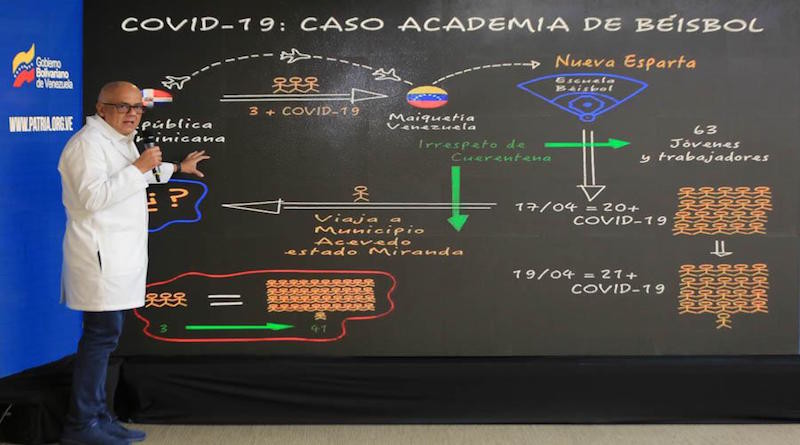 COVID-19: CASO ACADEMIA DE BÉISBOL
Gobierno
Bolivariano
de Venezuela
WWW.PATRIA.ORG.VE
3 + COVID-19
Maiquetia
Venezuela
Nueva Esparta
Escuela
Béisbol
Irrespeto de
Cuerentena
63
Jóvenes
y trabajadores
17/04 = 20+
COVID-19
Viaja a
Municipio
Acevedo
estado Miranda
19/04 = 21+
COVID-19
?
=
3
41